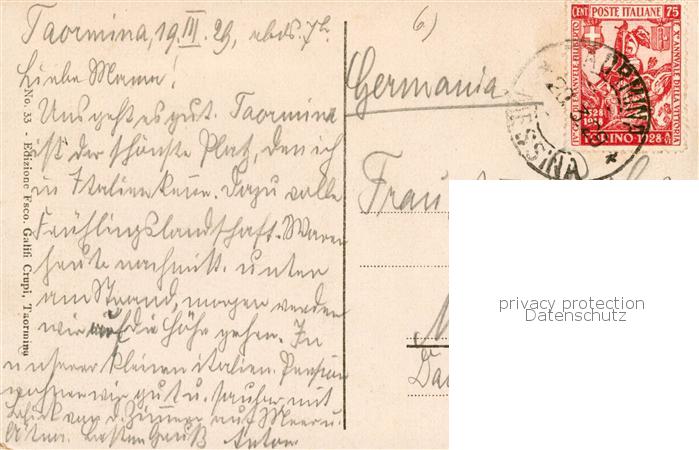 Taormina, 19. III. 29, abds. 7h.
Liebe Mama!
Uns geht es gut. Taormina
ist der schönste Platz, den ich
in Italien kenne. Dazu volle
Frühlingslandschaft. Waren
heute nachmitt. unten
am Strand, morgen werden
wir auf die Höhe gehen. In
unserer kleinen italien. Pension
wohnen wir gut u. sauber mit
vor d. Zimmer auf Meer u.
Ätna. Besten Gruß Anton
No. 33 - Edizione Fsco. Galifi Crupi, Taormina
6)
Germania
Frau
CENT POSTE ITALIANE 75
IV° CENT. EMANUELE FILIBERTO
X° ANNUALE DELLA VITTORIA
1528
TORINO 1928
TAORMINA
MESSINA
privacy protection
Datenschutz